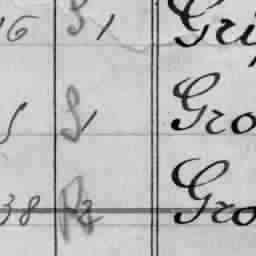 16 S1 Gri
S1 Gro
38 R2 Gro